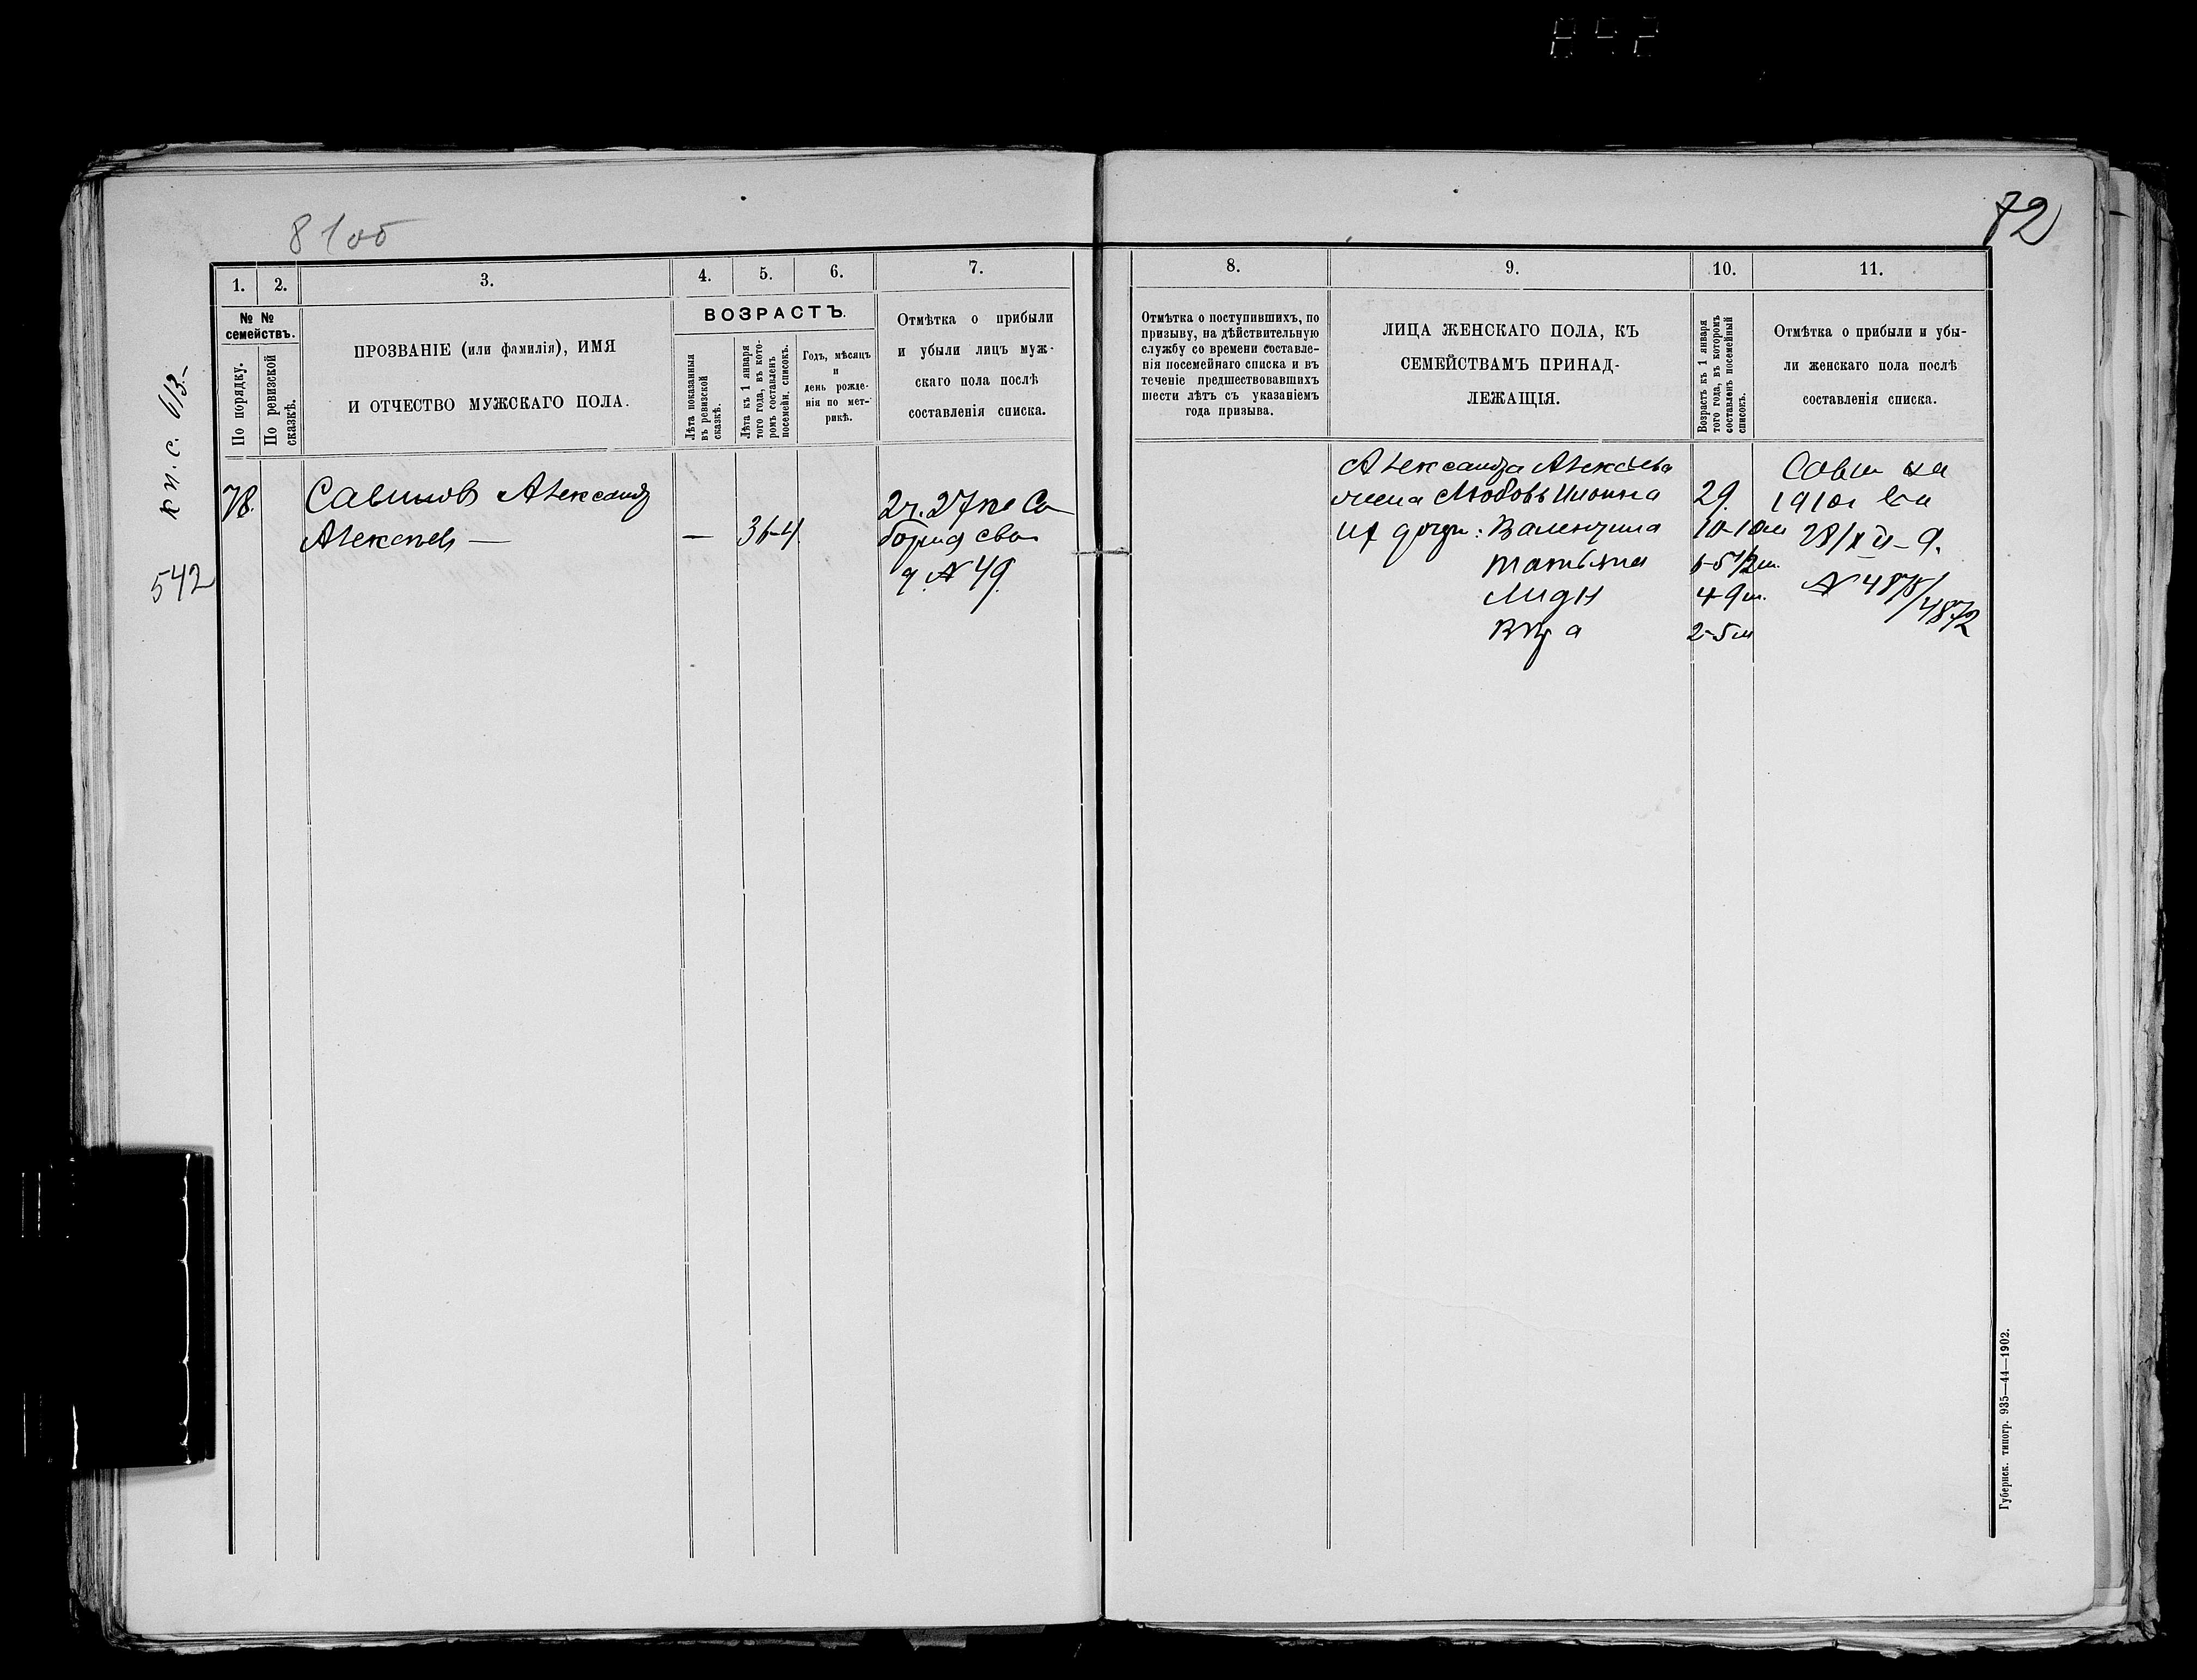 852
8 1об
72
к п. с. 613.-
542
1.
2.
3.
4.
5.
6.
7.
№ №
семействъ.
По порядку.
По ревизской
сказкѣ.
ПРОЗВАНІЕ (или фамилія), ИМЯ
И ОТЧЕСТВО МУЖСКАГО ПОЛА.
ВОЗРАСТЪ.
Лѣта показанныя
въ ревизской
сказкѣ.
Лѣта къ 1 января
того года, въ кото-
ромъ составленъ
посемейн. списокъ.
Годъ, мѣсяцъ
и
день рожде-
нія по мет-
рикѣ.
Отмѣтка о прибыли
и убыли лицъ муж-
скаго пола послѣ
составленія списка.
78.
Савиновъ Александ
Алексѣевъ —
—
36-4
2ч. 27 по Со
борной
№ 49.
8.
9.
10.
11.
Отмѣтка о поступившихъ, по
призыву, на дѣйствительную
службу со времени составле-
нія посемейнаго списка и въ
теченіе предшествовавшихъ
шести лѣтъ съ указаніемъ
года призыва.
ЛИЦА ЖЕНСКАГО ПОЛА, КЪ
СЕМЕЙСТВАМЪ ПРИНАД-
ЛЕЖАЩІЯ.
Возрастъ къ 1 января
того года, въ которомъ
составленъ посемейный
списокъ.
Отмѣтка о прибыли и убы-
ли женскаго пола послѣ
составленія списка.
Александра Алексѣева
жена Любовь 29.
их дочери: Валентина 10-10м
Татьяна 6-5½м.
Лидія 4-9м.
Вѣра 2-5м
на
1910г
28/XII-9.
№ 4875/4872
Губернск. типогр. 935—44—1902.